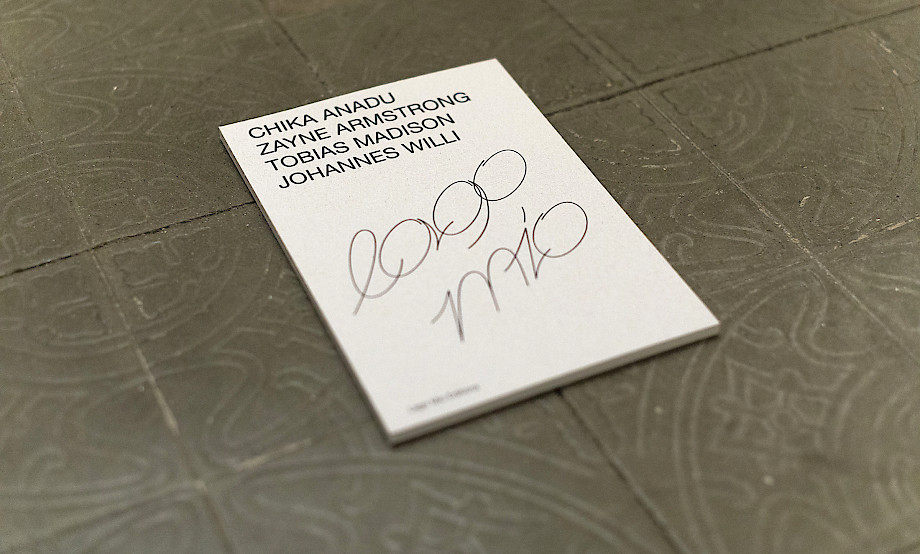 CHIKA ANADU
ZAYNE ARMSTRONG
TOBIAS MADISON
JOHANNES WILLI
mio